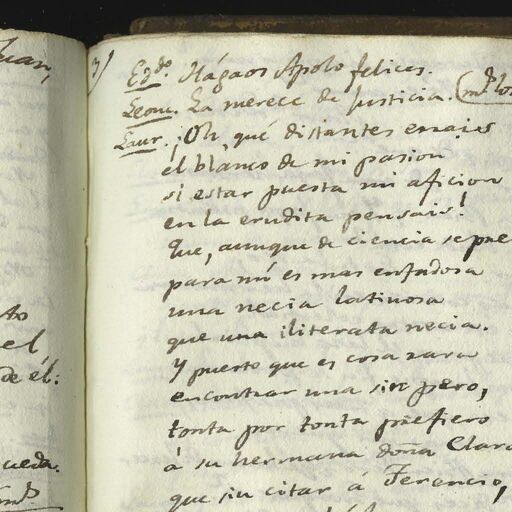 Juan,
to
el
de él:
queda.
3)
Egdo. Hágaos Apolo felices.
Leonc. La merece de Justicia.
Laur. ¡Oh, qué distantes errais
el blanco de mi pasion
si estar puesta mi aficion
en la erudita pensais!
Que, aunque de ciencia se pre
para mí es mas enfadosa
una necia latinosa
que una iliterata necia.
Y puesto que es cosa rara
encontrar una sin pero,
tonta por tonta prefiero
á su hermana doña Clara
que sin citar á Terencio,